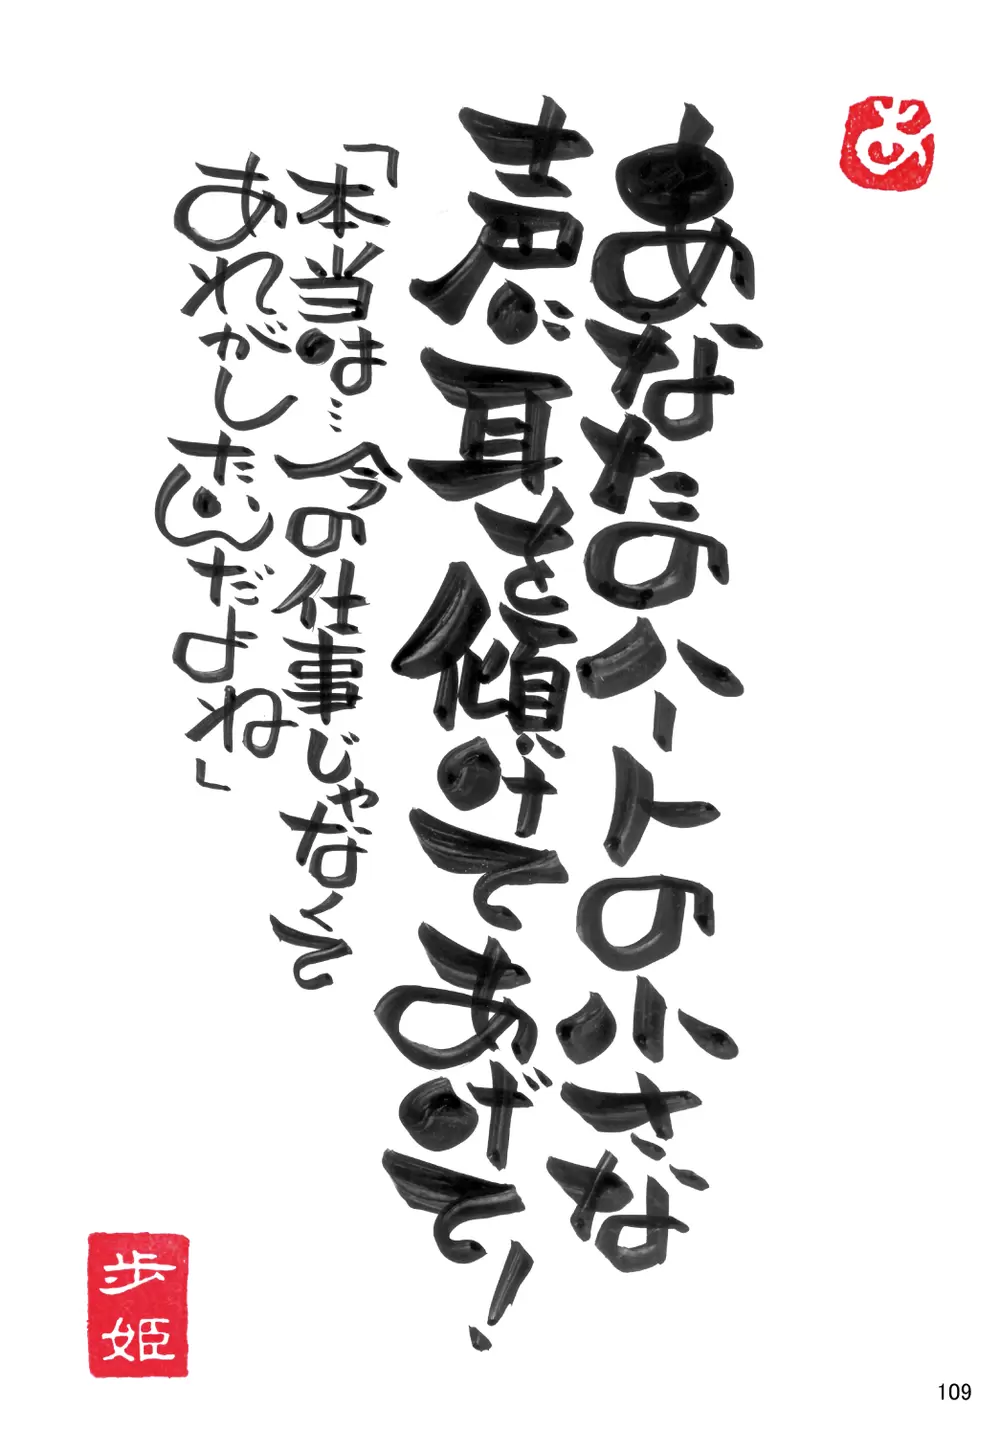 あ
あなたのハートの小さな
声に耳を傾けてあげて!
「本当は…今の仕事じゃなくて
あれがしたいんだよね」
歩姫
109